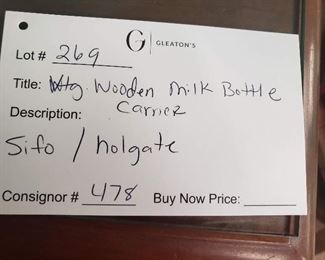 Lot # 269 G | GLEATON'S
Title: Vtg. Wooden Milk Bottle
Description: Carrier
Sifo / holgate
Consignor # 478 Buy Now Price: